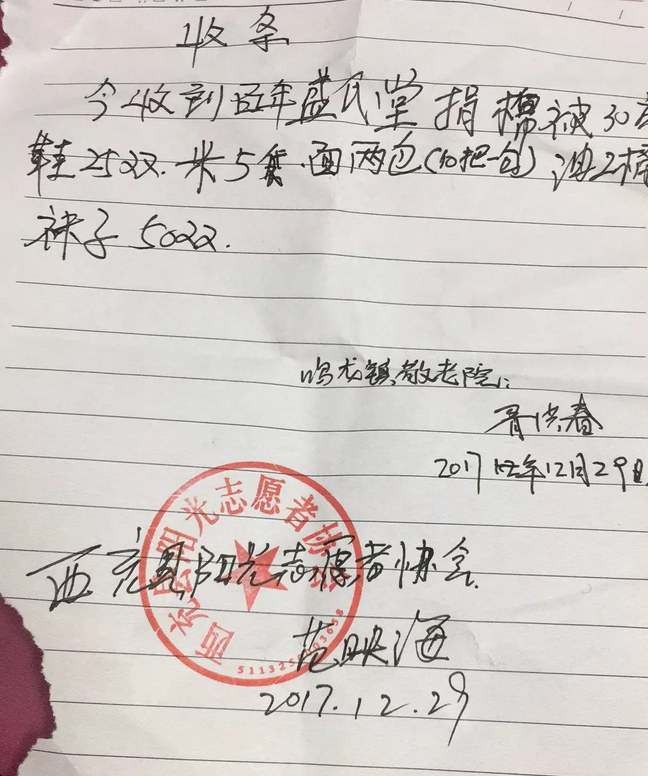 收条
今收到百年盛民堂捐棉被30
鞋25双.米5袋.面两包(10把一包)油2桶
袜子50双.
鸣龙镇敬老院:
胥洪春
2017年12月29日
西充县阳光志愿者协会
西充县阳光志愿者协会.
范映海
2017.12.29